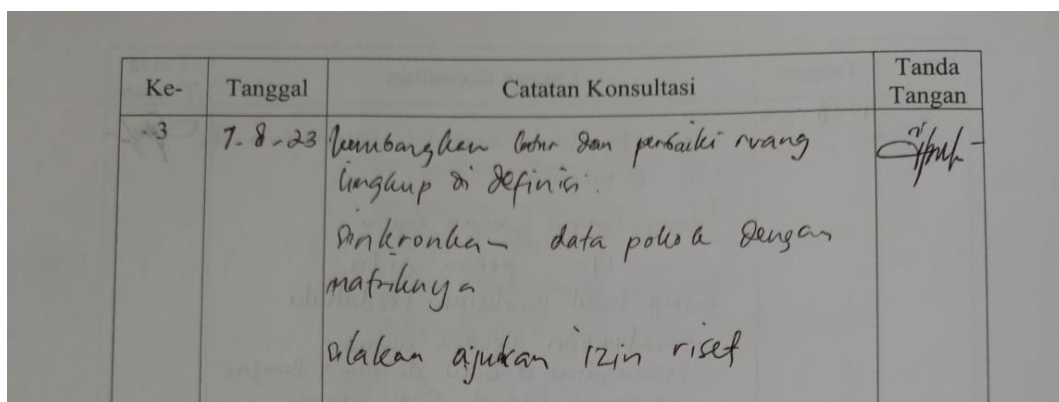 Ke- Tanggal Catatan Konsultasi Tanda Tangan
3 7-8-23 kembangkan latar dan perbaiki ruang
lingkup di definisi.
Sinkronkan data pokok dengan
matriknya
silakan ajukan izin riset